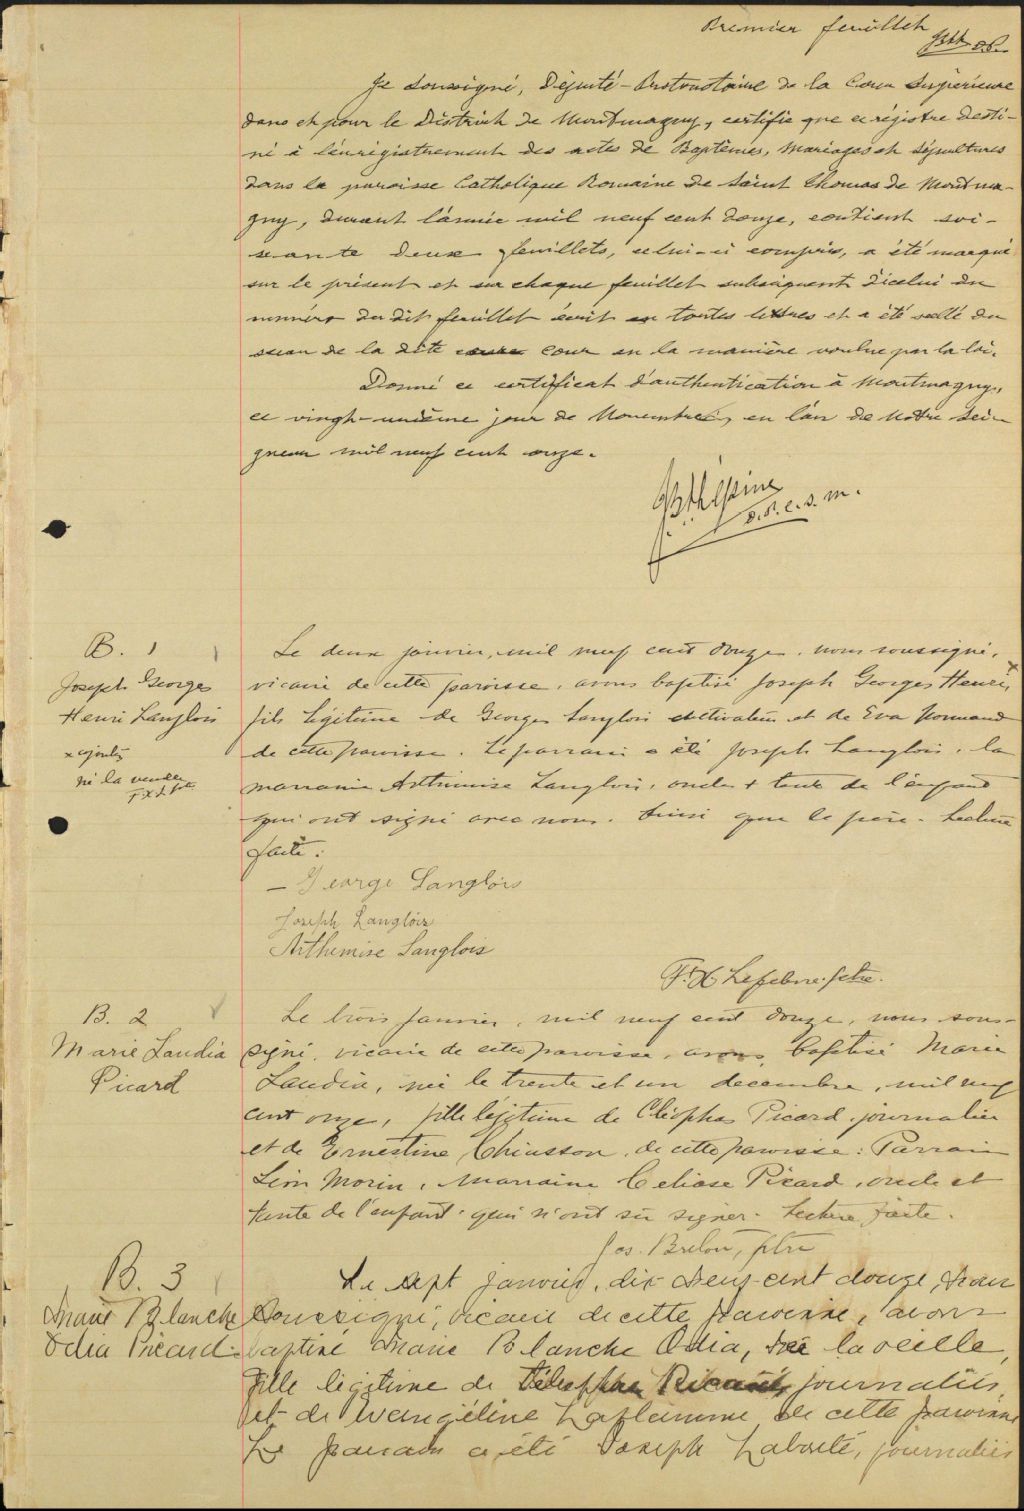 Premier feuillet
Je soussigné, Député-Protonotaire de la Cour Supérieure
dans et pour le District de Montmagny, certifie que ce régistre desti-
né à l'enrégistrement des actes de Baptêmes, Mariages et Sépultures
dans la paroisse Catholique Romaine de Saint Thomas de Montma-
gny, durant l'année mil neuf cent douze, contient soi-
xante deux feuillets, celui-ci compris, a été marqué
sur le présent et sur chaque feuillet subséquent d'icelui du
numéro du dit feuillet écrit en toutes lettres et a été scellé du
sceau de la dite cour en la manière voulue par la loi.
Donné ce certificat d'authentication à Montmagny,
ce vingt-unième jour de Novembre, en l'an de Notre Sei-
gneur mil neuf cent onze.
d.p.c.s.m.
B. 1
Joseph Georges
Henri Langlois
x ajouté
né la veille
F.X.L. ptre
Le deux janvier, mil neuf cent douze, nous soussigné,
vicaire de cette paroisse, avons baptisé Joseph Georges Henri, x
fils légitime de Georges Langlois cultivateur et de Eva Normand
de cette paroisse. Le parrain a été Joseph Langlois, la
marraine Arthémise Langlois, oncle + tante de l'enfant
qui ont signé avec nous. Ainsi que le père. Lecture
faite.
George Langlois
Joseph Langlois
Arthemise Langlois
F.X Lefebvre ptre.
B. 2
Marie Laudia
Picard
Le trois janvier, mil neuf cent douze, nous sous-
signé, vicaire de cette paroisse, avons baptisé Marie
Laudia, née le trente et un decembre, mil neuf
cent onze, fille légitime de Cléophas Picard, journalier
et de Ernestine Chiasson, de cette paroisse: Parrain
Léon Morin, Marraine Celiase Picard, oncle et
tante de l'enfant qui n'ont su signer. Lecture faite.
Jos. Breton, ptre
B. 3
Marie Blanche
Odia Picard
Le sept janvier, dix-neuf-cent douze, Nous
Soussigné, vicaire de cette paroisse, avons
baptisé Marie Blanche Odia, née la veille,
fille légitime de Picard, journalier,
et de Evangéline Laflamme de cette paroisse
Le parrain a été Joseph Laberté, journalier